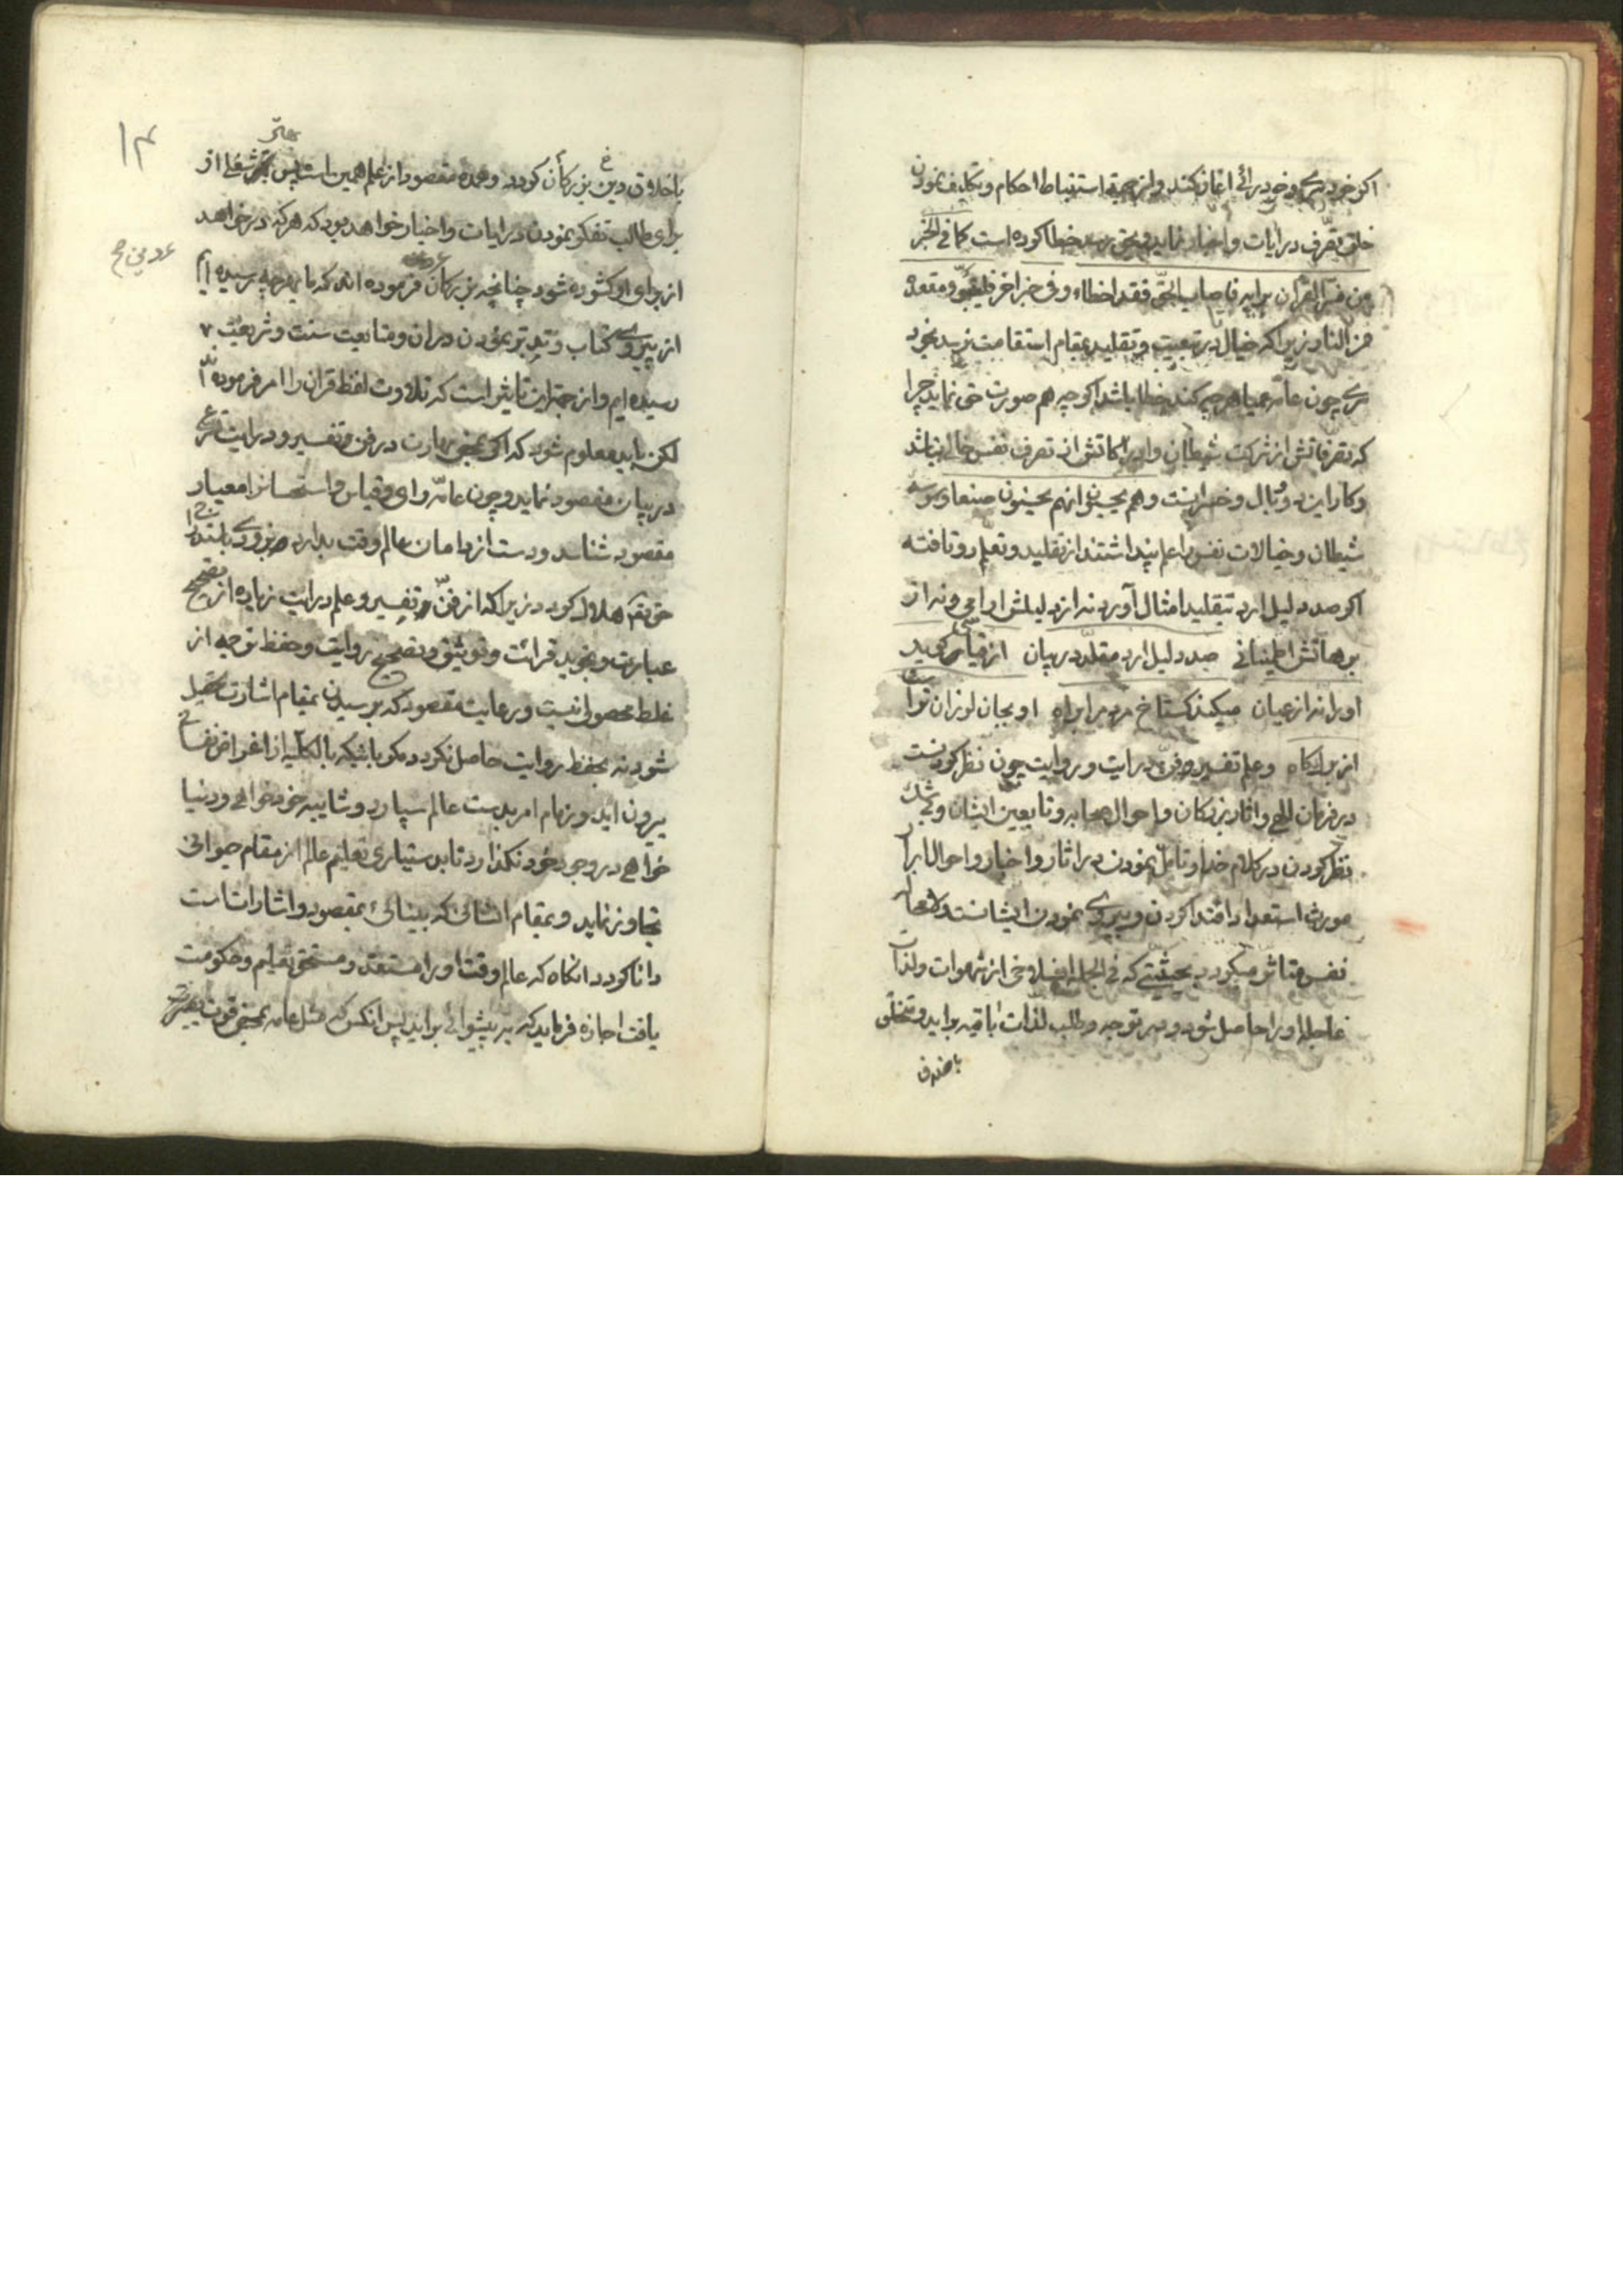 اکر خود سری و خود رائی اغاز کند و از جهة استنباط احکام و تکلیف نمودن
خلق تصرف در ایات و اخبار نماید و بحق رسد خطا کرده است کما فی الخبر
من فسر القران برایه فاصاب الحق فقد اخطاء و فی خبر اخر فلیتبوء مقعده
من النار زیرا که خیال در تبعیت و تقلید بمقام استقامت نرسد بخود
سری چون عامه عمیا هر چه کند خطا باشد اکر چه هم صورت حق نماید چرا
که تصرفاتش از شرکت شیطان و ادراکاتش از تصرف نفس خالی نباشد
و کار این دو وبال و خسرانست و هم یحسبون انهم یحسنون صنعا وسوسه
شیطان و خیالات نفس را علم پنداشتند از تقلید و تعلم رو تافته
اکر صد دلیل ارد تقلید امثال آورد نه از دلیلش اواهی و نه از
برهانش اطمینانی صد دلیل ارد مقلد در بیان از قیاسی کوید
او را نه از عیان میکند کستاخ مردم را براه او بجان لرزان تر است
از برک کاه و علم تفسیر و فن درایت و روایت چون نظر کردنست
در فرمان الهی و اثار بزرکان و احوال صحابه و تابعین ایشان و بی شک
نظر کردن در کلام خدا و تامل نمودن در اثار و اخبار و احوال ابرار
مورث استعداد اقتدا کردن و پیروی نمودن ایشانست لا محاله
نفس متاثر میکردد بحیثیتی که فی الجمله انسلاخی از شهوات و لذات
عاجله او را حاصل شود و سر توجه و طلب لذات باقیه براید و متخلق
باخلاق
باخلاق دین بزرکان کردد و عمده مقصود از علم همین است پس بهتر شغلی از
برای طالب تفکر نمودن در ایات و اخبار خواهد بود که هر که در خواهد
از برای او کشوده شود چنانچه بزرکان فرموده اند که ما بهر چه رسیده ایم
از پیروی کتاب و تدبر نمودن در ان و متابعت سنت و شریعت
رسیده ایم و از جهة این تاثیر است که تلاوت لفظ قران را امر فرموده اند
لکن باید معلوم شود که اکر بمحض مهارت در فن و تفسیر و درایت
در بیان مقصود نماید و چون عامه رای و قیاس و استحسانرا معیار
مقصود شناسد و دست از دامان عالم وقت بدارد بزودی
هلاک کردد زیرا که از فن تفسیر و علم درایت زیاده از تصحیح
عبارت و تجوید قرائت و توثیق و تصحیح روایت و حفظ توجه از
غلط محصولی نیست و رعایت مقصود که برسیدن بمقام اشارت
شود نه بحفظ روایت حاصل نکردد مکر بانیکه بالکلیه از اغراض
بیرون اید و زمام امر بدست عالم سپارد و شایبه خود خواهی و دنیا
خواهی در وجود خود نکذارد تا بدستیاری تعلیم عالم از مقام حیوانی
تجاوز نماید و بمقام انسانی که بینائی بمقصود و اشارات است
دانا کردد انکاه که عالم وقت او را مستعد و مستحق تعلیم و حکومت
یافت اجازه فرماید که به پیشوائی براید پس انکس که مثل عامه بمحض قوت
۱۴